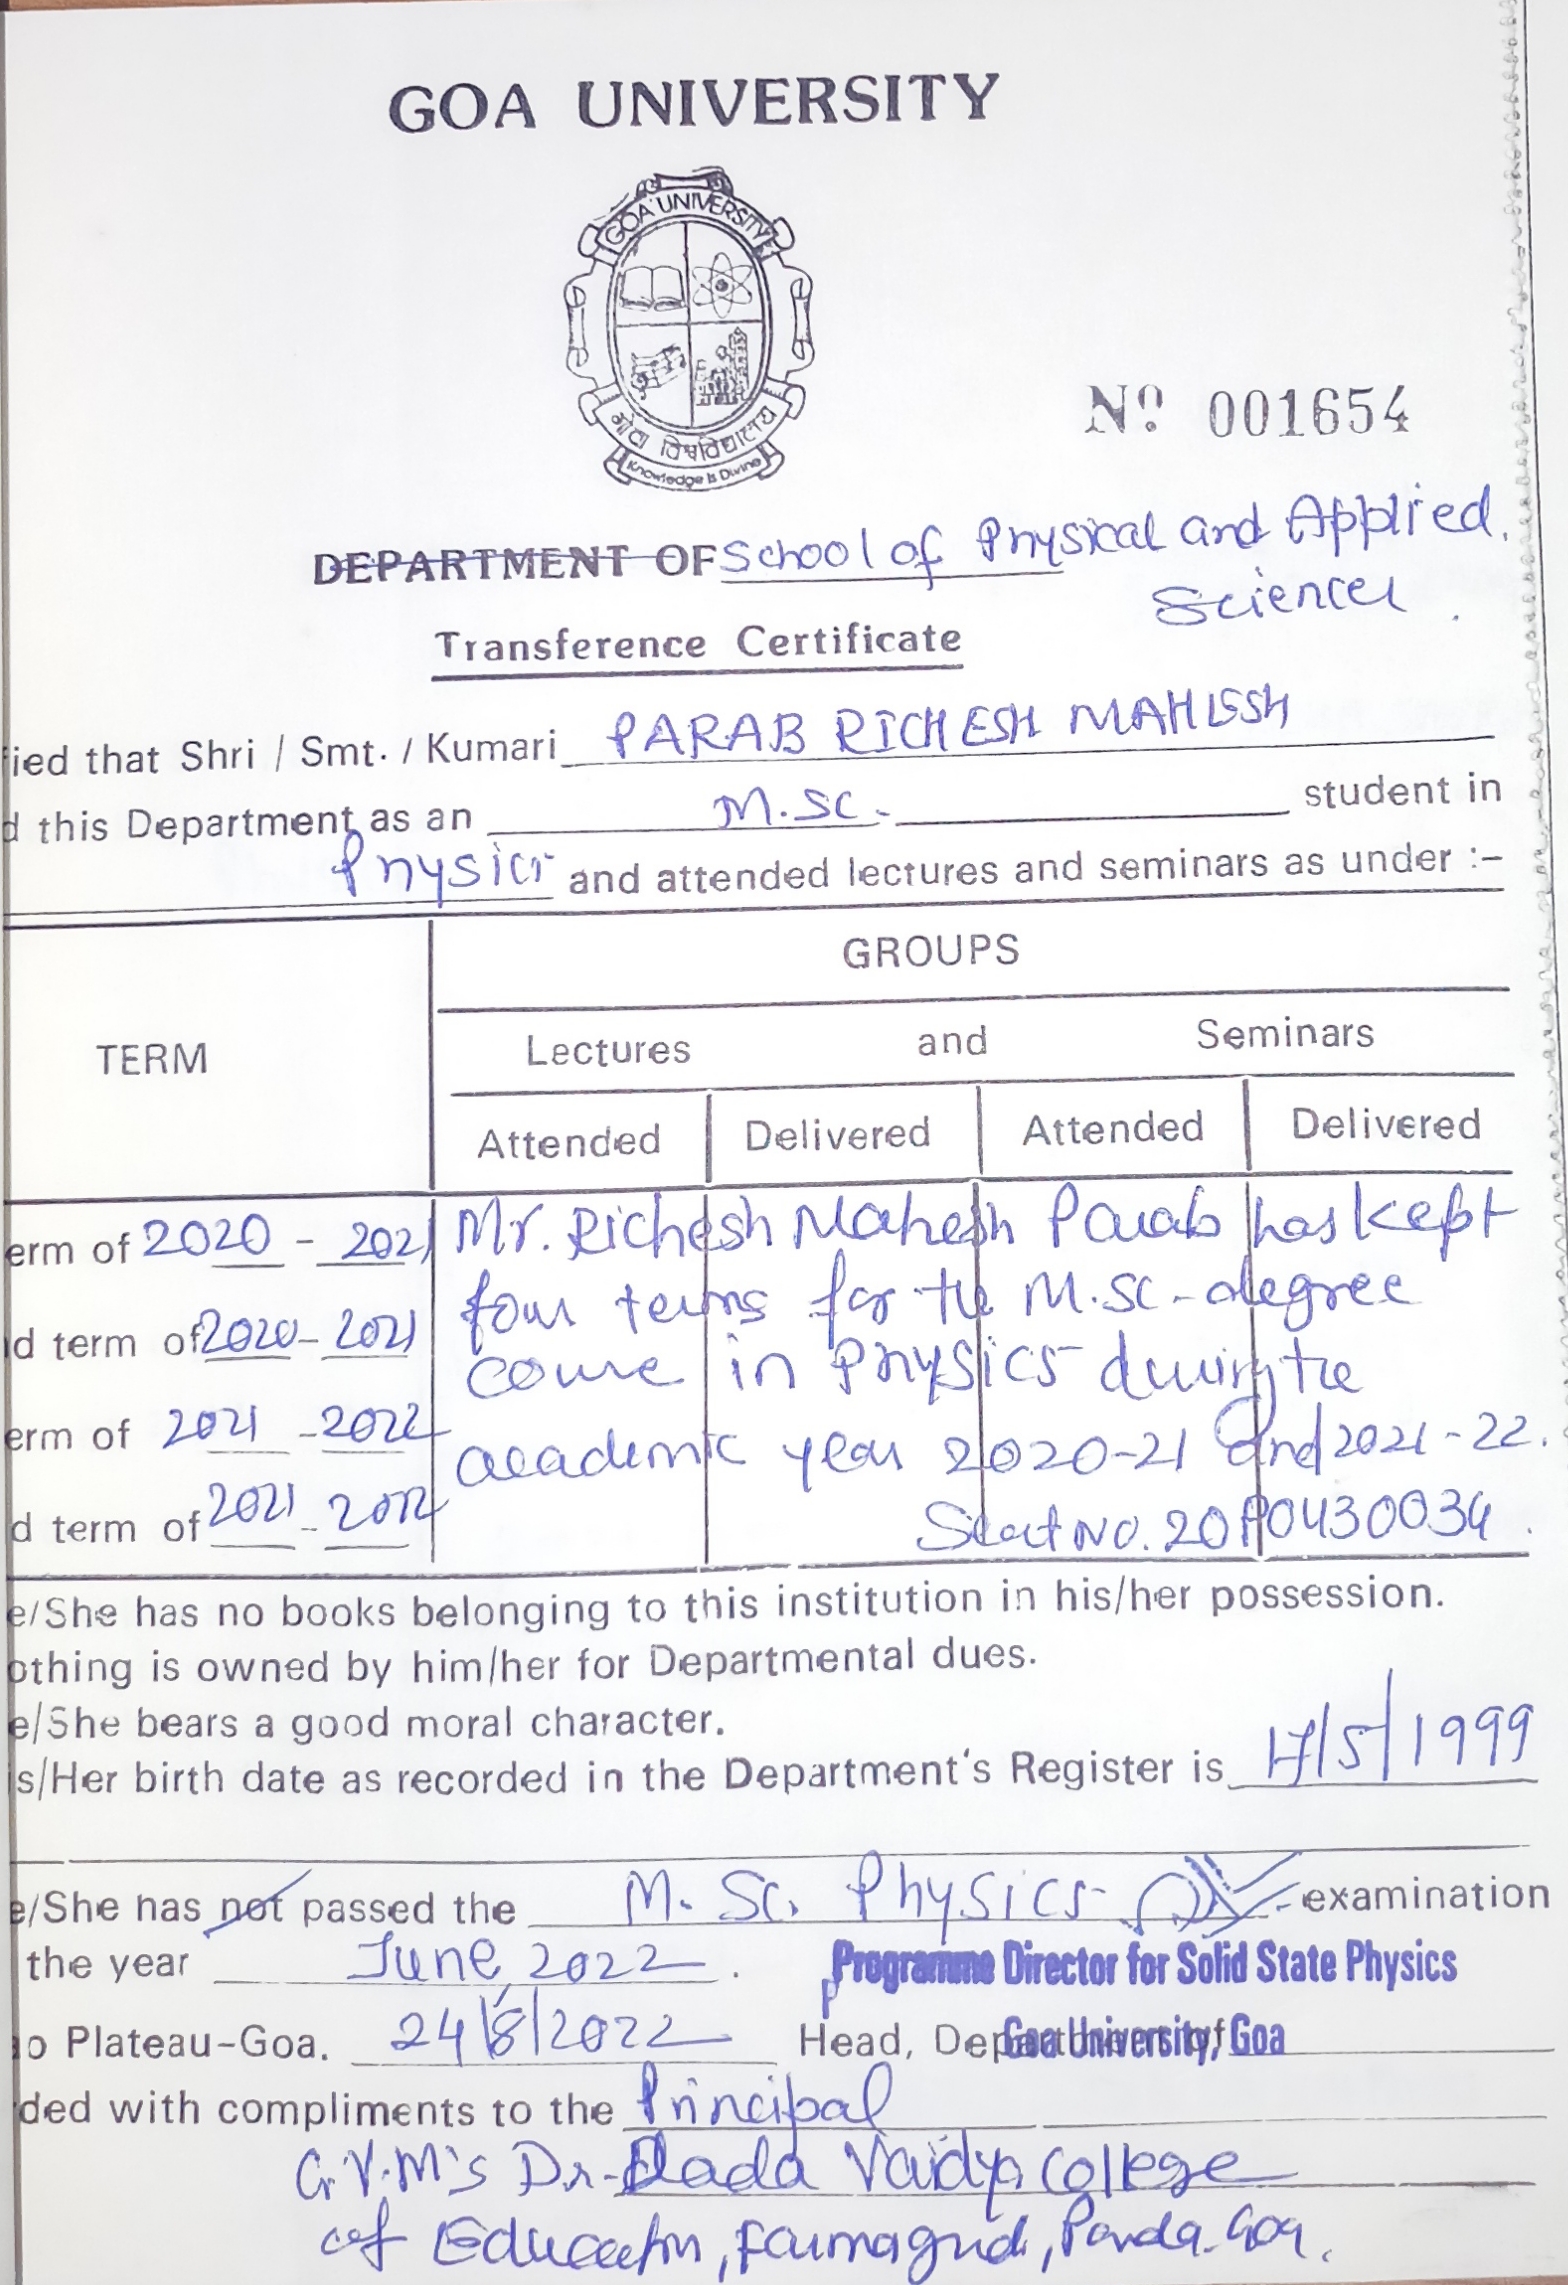 GOA UNIVERSITY
GOA UNIVERSITY
गोवा विश्वविद्यालय
Knowledge is Divine
Nº 001654
DEPARTMENT OF School of Physical and Applied
Sciences.
Transference Certificate
ied that Shri / Smt. / Kumari PARAB RICHESH MAHESH
d this Department as an M.Sc. student in
Physics and attended lectures and seminars as under :–
GROUPS
TERM Lectures and Seminars
Attended Delivered Attended Delivered
erm of 2020 - 2021 Mr. Richesh Mahesh Parab has kept
d term of 2020 - 2021 four terms for the M.Sc. degree
course in Physics during the
erm of 2021 - 2022 academic year 2020-21 and 2021-22.
d term of 2021 - 2022 Seat No. 20P0430034.
e/She has no books belonging to this institution in his/her possession.
othing is owned by him/her for Departmental dues.
e/She bears a good moral character.
is/Her birth date as recorded in the Department's Register is 17/5/1999
e/She has not passed the M.Sc. Physics examination
the year June, 2022. Programme Director for Solid State Physics
o Plateau-Goa. 24/8/2022 Head, Department of Goa University, Goa
ded with compliments to the Principal
G.V.M's Dr. Dada Vaidya College
of Education, Farmagudi, Ponda-Goa.